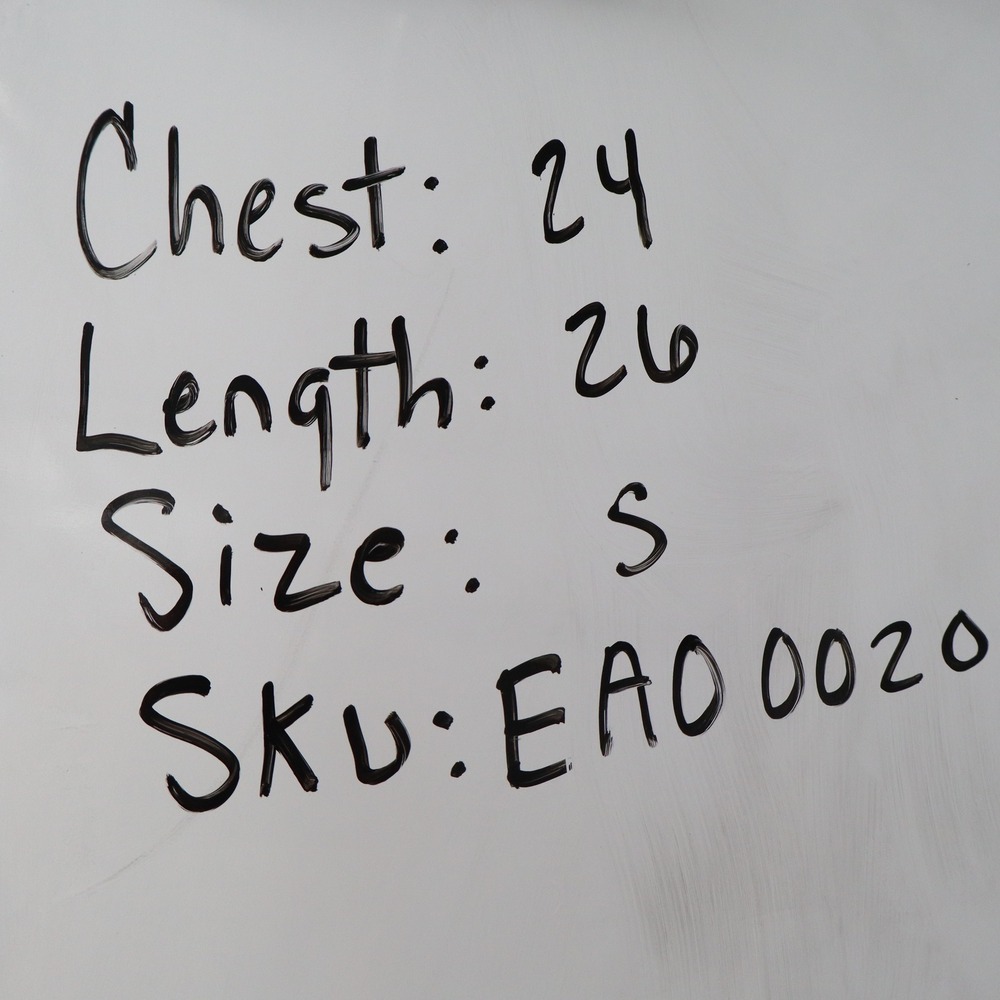 Chest: 24
Length: 26
Size: S
SKU: EA00020